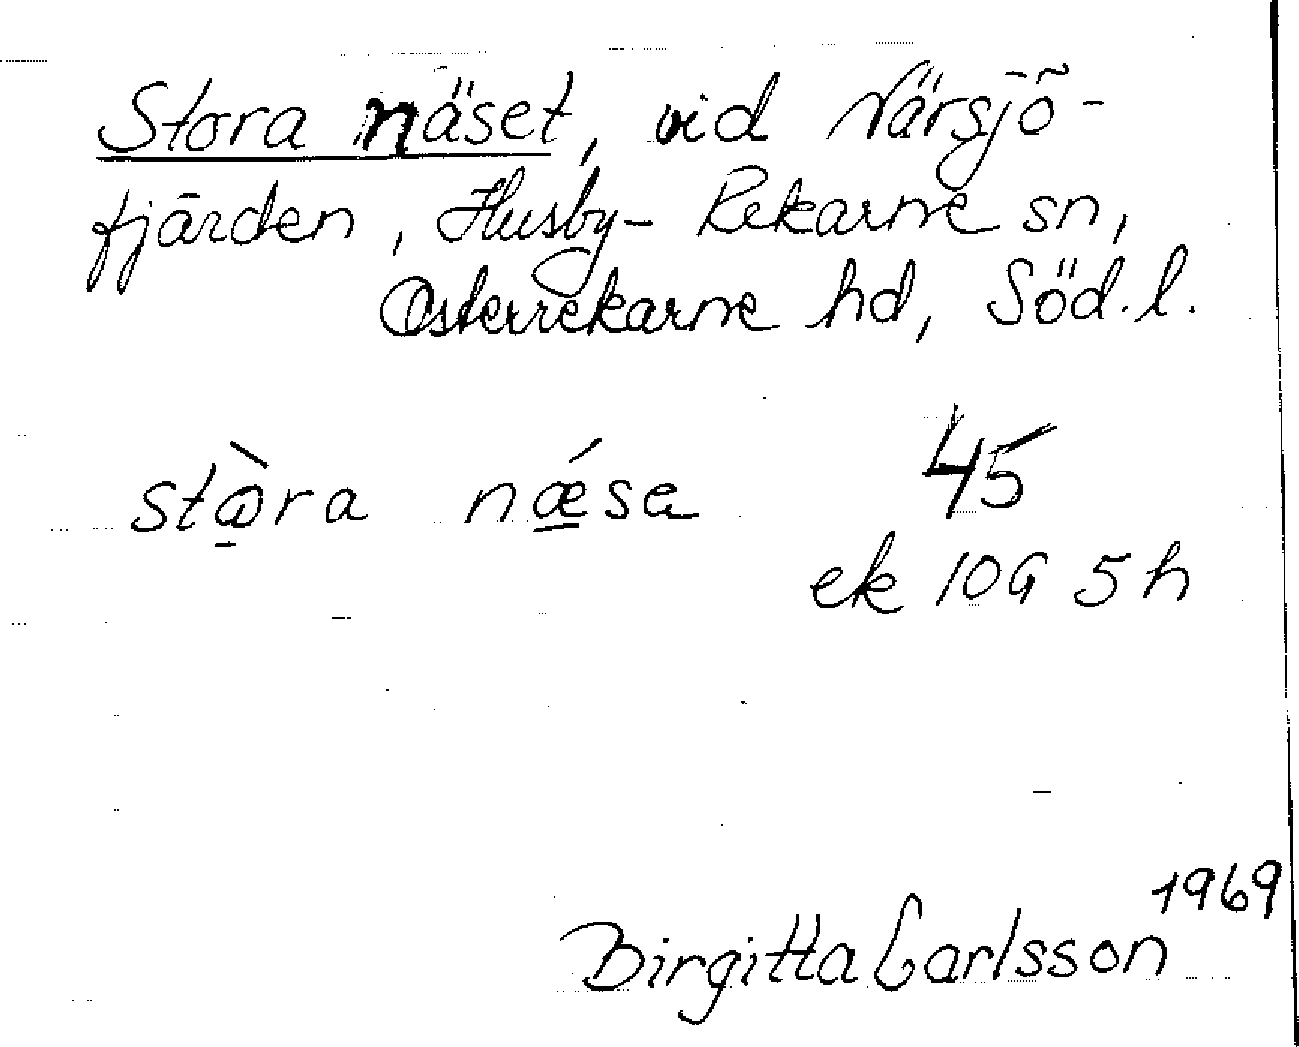 Stora näset, vid Närsjö-
fjärden, Husby-Rekarne sn,
Österrekarne hd, Söd. l.
nǽ̱sa 45
ek 10G 5h
1969
Birgitta Carlsson